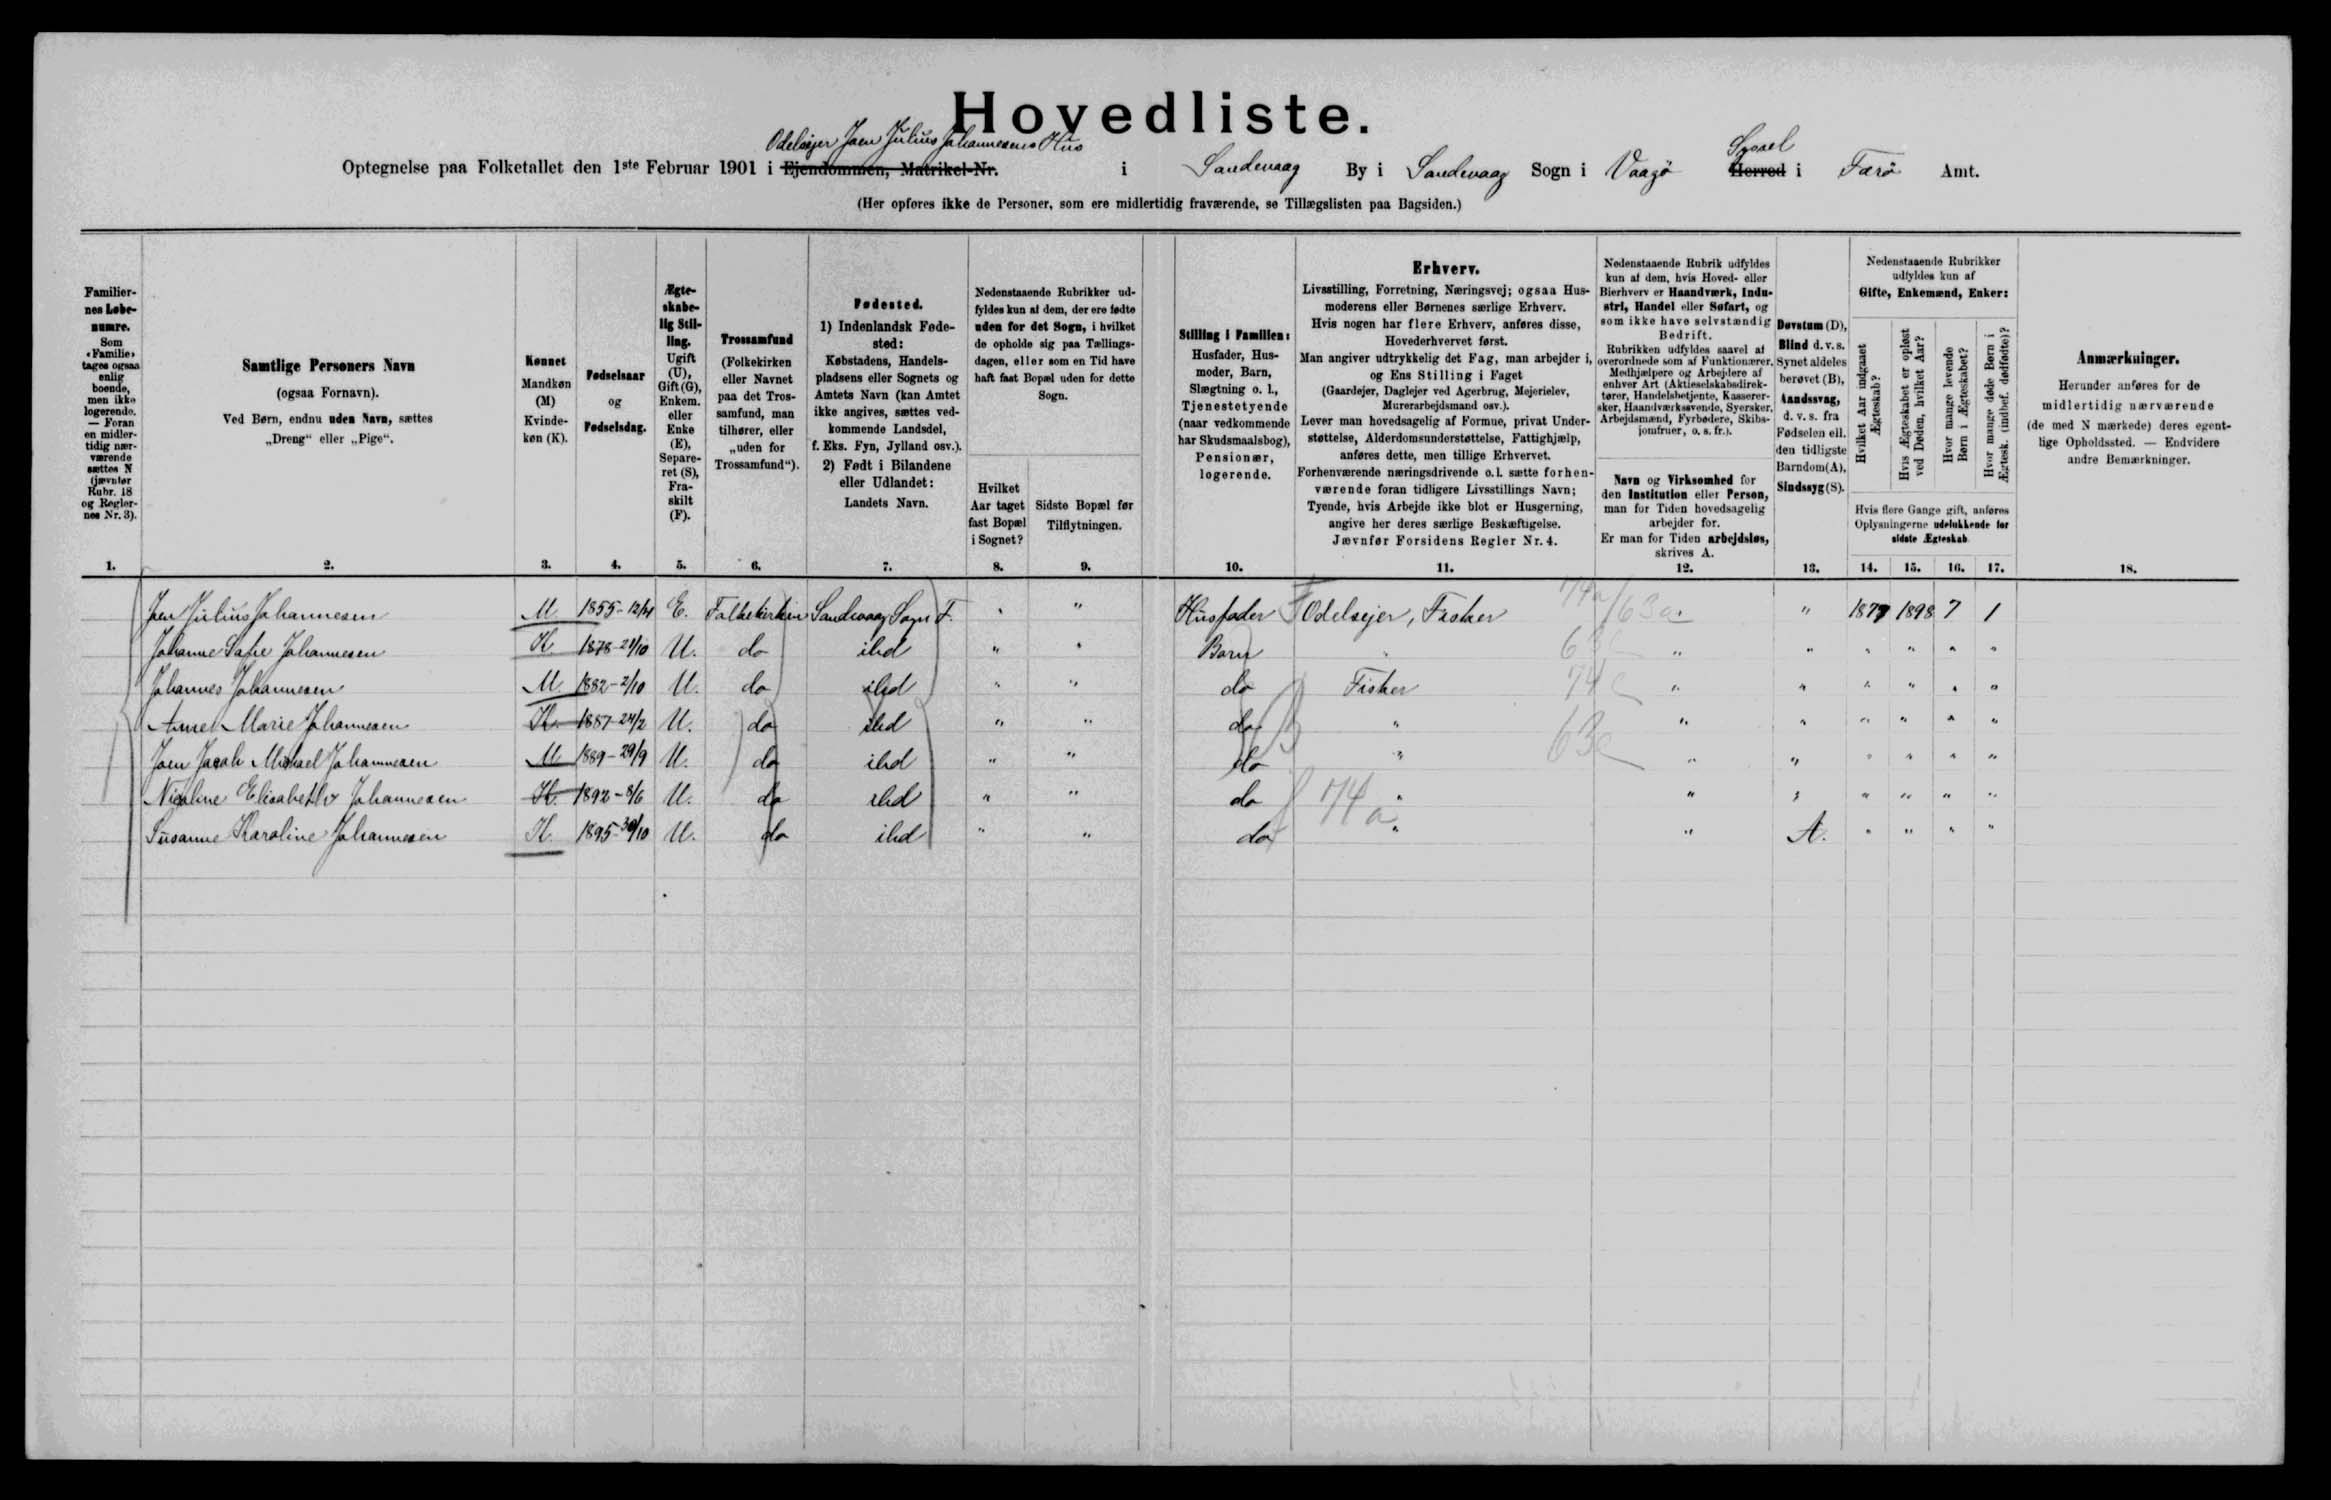 Hovedliste.
Odelsejer Joen Julius Johannesens Hus
Syssel
Optegnelse paa Folketallet den 1ste Februar 1901 i Ejendommen, Matrikel-Nr. i Sandevaag By i Sandevaag Sogn i Vaagø Herred i Færø Amt.
(Her opføres ikke de Personer, som ere midlertidig fraværende, se Tillægslisten paa Bagsiden.)
Familiernes Løbenumre.
Som «Familie» tages ogsaa enlig boende, men ikke logerende. — Foran en midlertidig nærværende sættes N (jævnfør Rubr. 18 og Reglernes Nr. 3).
Samtlige Personers Navn
(ogsaa Fornavn).
Ved Børn, endnu uden Navn, sættes
„Dreng“ eller „Pige“.
Kønnet
Mandkøn (M)
Kvindekøn (K).
Fødselsaar
og
Fødselsdag.
Ægteskabelig Stilling.
Ugift (U), Gift (G), Enkem. eller Enke (E), Separeret (S), Fraskilt (F).
Trossamfund
(Folkekirken eller Navnet paa det Trossamfund, man tilhører, eller „uden for Trossamfund“).
Fødested.
1) Indenlandsk Fødested:
Købstadens, Handelspladsens eller Sognets og Amtets Navn (kan Amtet ikke angives, sættes vedkommende Landsdel, f. Eks. Fyn, Jylland osv.).
2) Født i Bilandene eller Udlandet:
Landets Navn.
Nedenstaaende Rubrikker udfyldes kun af dem, der ere fødte uden for det Sogn, i hvilket de opholde sig paa Tællingsdagen, eller som en Tid have haft fast Bopæl uden for dette Sogn.
Hvilket Aar taget fast Bopæl i Sognet?
Sidste Bopæl før Tilflytningen.
Stilling i Familien:
Husfader, Husmoder, Barn, Slægtning o. l., Tjenestetyende (naar vedkommende har Skudsmaalsbog), Pensionær, logerende.
Erhverv.
Livsstilling, Forretning, Næringsvej; ogsaa Husmoderens eller Børnenes særlige Erhverv.
Hvis nogen har flere Erhverv, anføres disse, Hovederhvervet først.
Man angiver udtrykkelig det Fag, man arbejder i, og Ens Stilling i Faget
(Gaardejer, Daglejer ved Agerbrug, Mejerielev, Murerarbejdsmand osv.).
Lever man hovedsagelig af Formue, privat Understøttelse, Alderdomsunderstøttelse, Fattighjælp, anføres dette, men tillige Erhvervet.
Forhenværende næringsdrivende o. l. sætte forhenværende foran tidligere Livsstillings Navn; Tyende, hvis Arbejde ikke blot er Husgerning, angive her deres særlige Beskæftigelse.
Jævnfør Forsidens Regler Nr. 4.
Nedenstaaende Rubrik udfyldes kun af dem, hvis Hoved- eller Bierhverv er Haandværk, Industri, Handel eller Søfart, og som ikke have selvstændig Bedrift.
Rubrikken udfyldes saavel af overordnede som af Funktionærer, Medhjælpere og Arbejdere af enhver Art (Aktieselskabsdirektører, Handelsbetjente, Kasserersker, Haandværkssvende, Syersker, Arbejdsmænd, Fyrbødere, Skibsjomfruer, o. s. fr.).
Navn og Virksomhed for den Institution eller Person, man for Tiden hovedsagelig arbejder for.
Er man for Tiden arbejdsløs, skrives A.
Døvstum (D), Blind d. v. s. Synet aldeles berøvet (B), Aandssvag, d. v. s. fra Fødselen ell. den tidligste Barndom (A), Sindssyg (S).
Nedenstaaende Rubrikker udfyldes kun af
Gifte, Enkemænd, Enker:
Hvilket Aar indgaaet Ægteskab?
Hvis Ægteskabet er opløst ved Døden, hvilket Aar?
Hvor mange levende Børn i Ægteskabet?
Hvor mange døde Børn i Ægtesk. (indbef. dødfødte)?
Hvis flere Gange gift, anføres Oplysningerne udelukkende for sidste Ægteskab.
Anmærkninger.
Herunder anføres for de midlertidig nærværende (de med N mærkede) deres egentlige Opholdssted. — Endvidere andre Bemærkninger.
1. 2. 3. 4. 5. 6. 7. 8. 9. 10. 11. 12. 13. 14. 15. 16. 17. 18.
Joen Julius Johannesen M 1855-12/4 E. Folkekirken Sandevaag Sogn F. " " Husfader Odelsejer, Fisker 74a/63a " 1877 1898 7 1
Johanne Sofie Johannesen K 1878-21/10 U. do ibd " " Barn " " " " " " "
Johannes Johannesen M. 1882-2/10 U. do ibd " " do Fisker " " " " " "
Anne Marie Johannesen K. 1887-24/2 U. do ibd " " do " " " " " " "
Joen Jacob Michael Johannesen M 1889-29/9 U. do ibd " " do " " " " " " "
Nicoline Elisabeth Johannesen K. 1892-8/6 U. do ibd " " do " " " " " " "
Susanne Karoline Johannesen K. 1895-30/10 U. do ibd " " do 74a " " A. " " " "